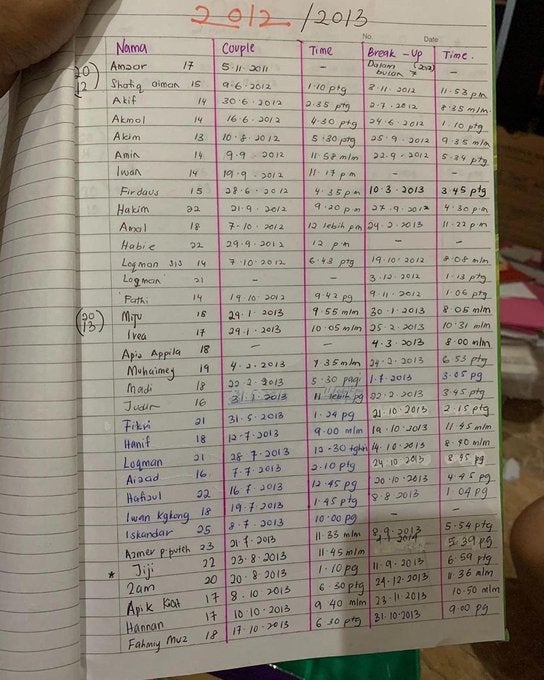 2012/2013
No. Date
Nama Couple Time Break-Up Time.
20 12) Amzar 17 5.11.2011 - Dalam bulan 7 (2012) -
Shafiq aiman 15 9.6.2012 1.10 ptg 3.11.2012 11.53 p.m
Akif 14 30.6.2012 2.35 ptg 2.7.2012 8.35 mlm
Akmal 14 16.6.2012 4.30 ptg 24.6.2012 1.10 ptg
Akim 13 10.8.2012 5.30 ptg 25.9.2012 9.35 mlm
Amin 14 9.9.2012 11.58 mlm 22.9.2012 5.24 ptg
Iwan 14 19.9.2012 11.17 p.m - -
Firdaus 15 28.6.2012 4.35 p.m 10.3.2013 3.45 ptg
Hakim 22 21.9.2012 9.20 p.m 27.9.2012 4.30 p.m
Amal 18 7.10.2012 12 lebih pm 24.2.2013 11.22 p.m
Habie 22 29.9.2012 12 p.m - -
Loqman sis 14 7.10.2012 6.43 ptg 19.10.2012 8.08 mlm
Loqman 21 - - 3.12.2012 1.13 ptg
Fathi 14 19.10.2012 9.42 pg 9.11.2012 1.06 ptg
20 13) Miju 15 29.1.2013 9.55 mlm 30.1.2013 8.05 mlm
Irea 17 29.1.2013 10.05 mlm 25.2.2013 10.31 mlm
Apiz Appila 18 - - 4.3.2013 8.00 mlm
Muhaimey 19 4.2.2013 7.35 mlm 24.2.2013 6.53 ptg
Madi 18 22.2.2013 5.30 pagi 1.7.2013 3.05 pg
Judin 16 31.1.2013 11 lebih pg 22.2.2013 3.45 ptg
Fikri 21 31.5.2013 1.24 pg 21.10.2013 2.15 ptg
Hanif 18 12.7.2013 9.00 mlm 19.10.2013 11.45 mlm
Loqman 21 28.7.2013 12.30 tghri 14.10.2013 8.40 mlm
Aizad 16 7.7.2013 2.10 ptg 24.10.2013 8.45 pg
Hafizul 22 16.7.2013 12.45 pg 20.10.2013 4.45 pg
Iwan Kgkong 18 19.7.2013 1.45 ptg 8.8.2013 1.04 pg
Iskandar 25 8.7.2013 10.00 pg - -
Azmer p.puteh 23 21.7.2013 11.33 mlm 8.9.2013 5.54 ptg
* Jiji 22 23.8.2013 11.45 mlm 5.39 pg
Zam 20 20.8.2013 1.10 pg 11.9.2013 6.59 ptg
Apik Kat 17 8.10.2013 6.30 ptg 24.12.2013 11.36 mlm
Hannan 17 10.10.2013 9.40 mlm 23.11.2013 10.50 mlm
Fahmiy Muz 18 17.10.2013 6.30 ptg 31.10.2013 9.00 pg